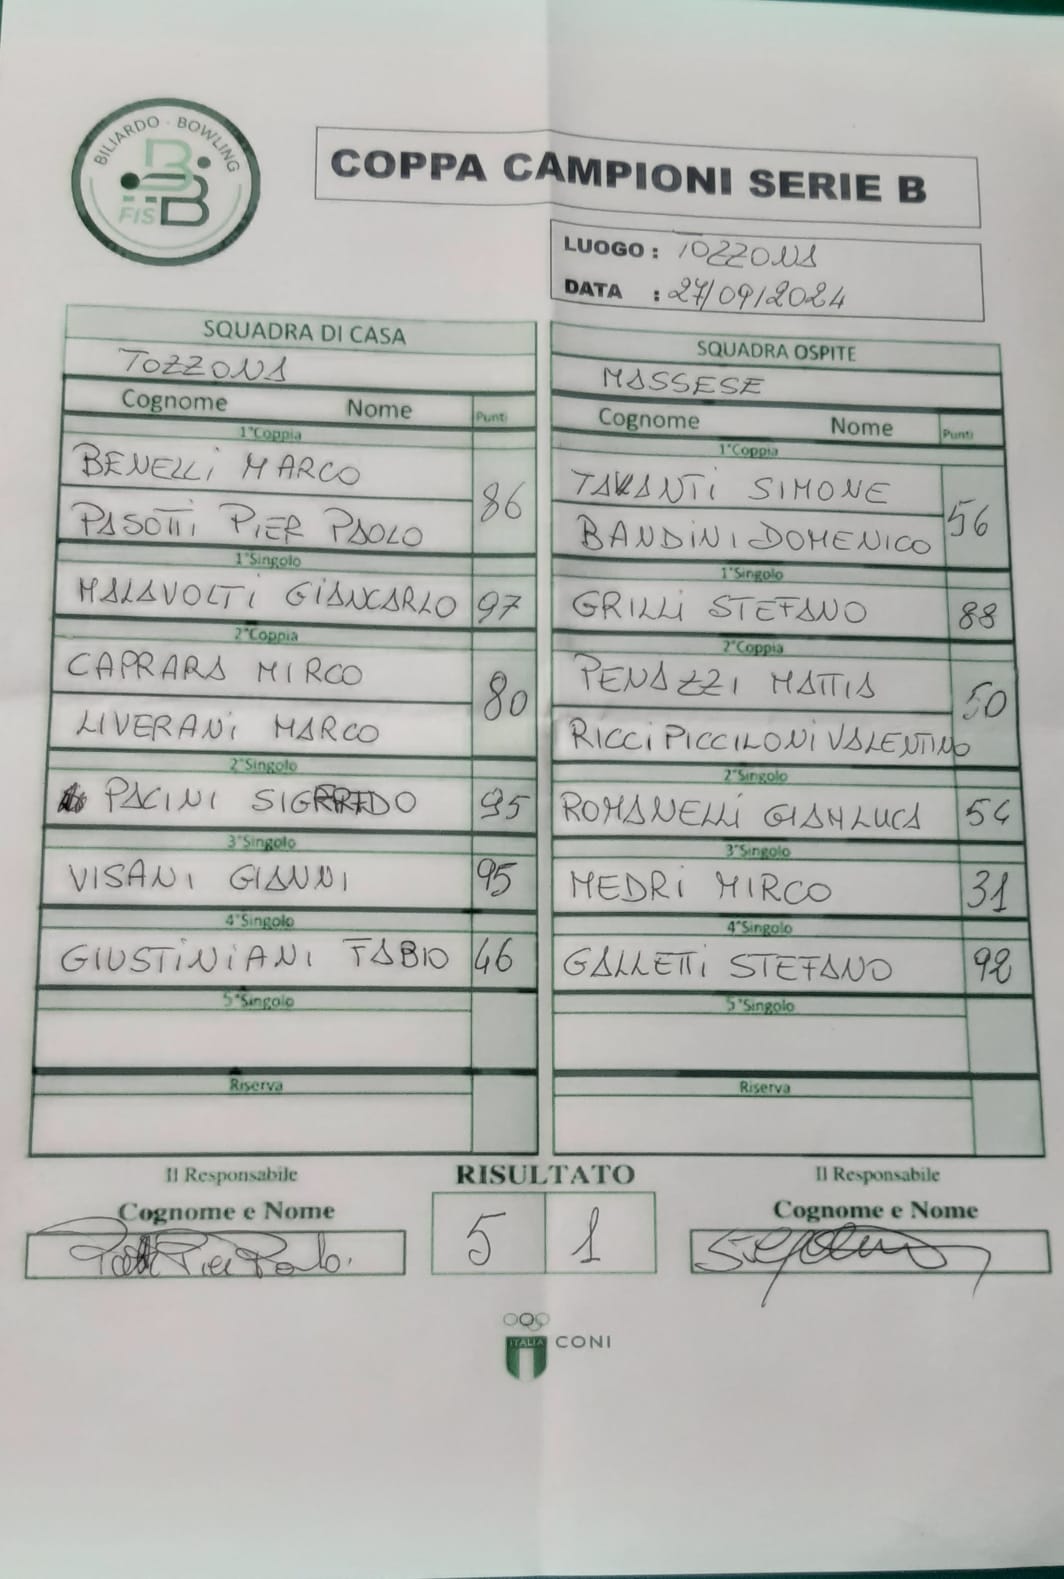 BILIARDO - BOWLING
FISBB
COPPA CAMPIONI SERIE B
LUOGO : TOZZONA
DATA : 27/09/2024
SQUADRA DI CASA
TOZZONA
Cognome Nome Punti
1°Coppia
BENELLI MARCO
86
PASOTTI PIER PAOLO
1°Singolo
MALAVOLTI GIANCARLO 97
2°Coppia
CAPRARA MIRCO
80
LIVERANI MARCO
2°Singolo
PACINI SIGFRIDO 95
3°Singolo
VISANI GIANNI 95
4°Singolo
GIUSTINIANI FABIO 46
5°Singolo
Riserva
SQUADRA OSPITE
MASSESE
Cognome Nome Punti
1°Coppia
TAVANTI SIMONE
56
BANDINI DOMENICO
1°Singolo
GRILLI STEFANO 88
2°Coppia
PENAZZI MATTIA
50
RICCI PICCILONI VALENTINO
2°Singolo
ROMANELLI GIANLUCA 54
3°Singolo
MEDRI MIRCO 31
4°Singolo
GALLETTI STEFANO 92
5°Singolo
Riserva
Il Responsabile
Cognome e Nome
RISULTATO
5 1
Il Responsabile
Cognome e Nome
ITALIA CONI